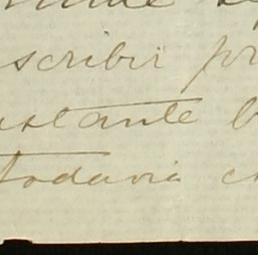 scribir pr
stante b
todavia c